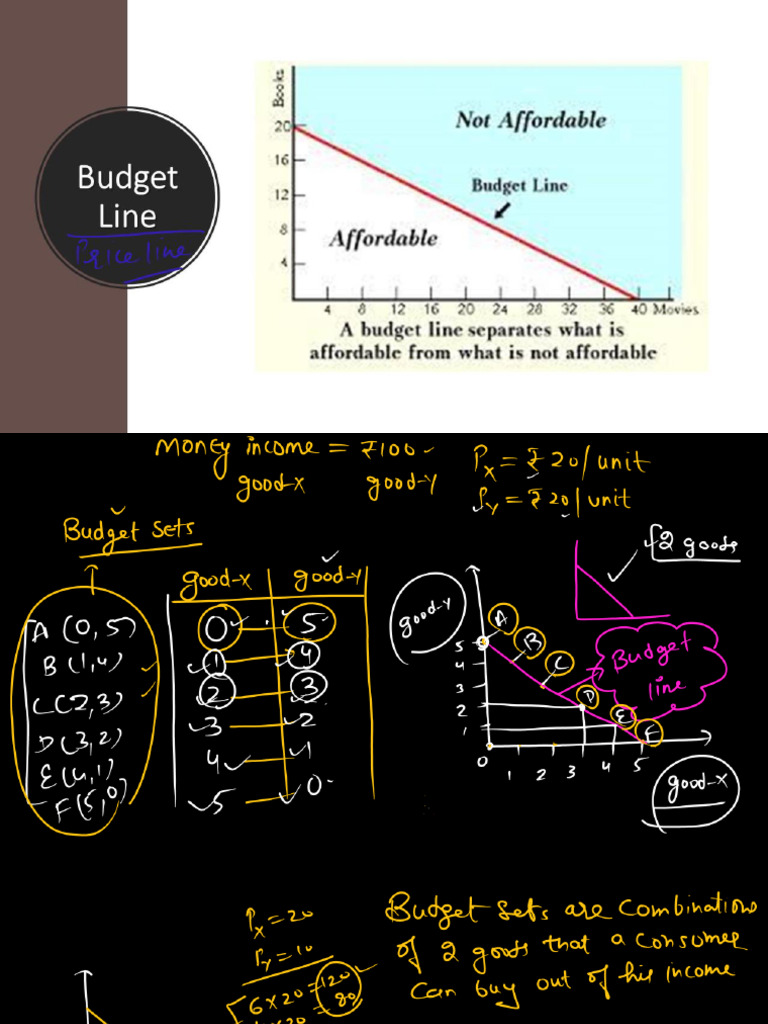 Budget
Line
Price line
Books
20
16
12
8
4
Not Affordable
Budget Line
Affordable
4 8 12 16 20 24 28 32 36 40 Movies
A budget line separates what is
affordable from what is not affordable
Money income = ₹100
good-X good-Y
Px = ₹20/unit
Py = ₹20/unit
Budget sets
A (0,5)
B (1,4)
C (2,3)
D (3,2)
E (4,1)
F (5,0)
good-x good-y
0 5
1 4
2 3
3 2
4 1
5 0
2 goods
good-y
A
B
C
D
E
F
Budget
line
5
4
3
2
1
0 1 2 3 4 5
good-x
Px = 20
Py = 10
6 x 20 = 120
Budget sets are combinations
of 2 goods that a consumer
can buy out of his income